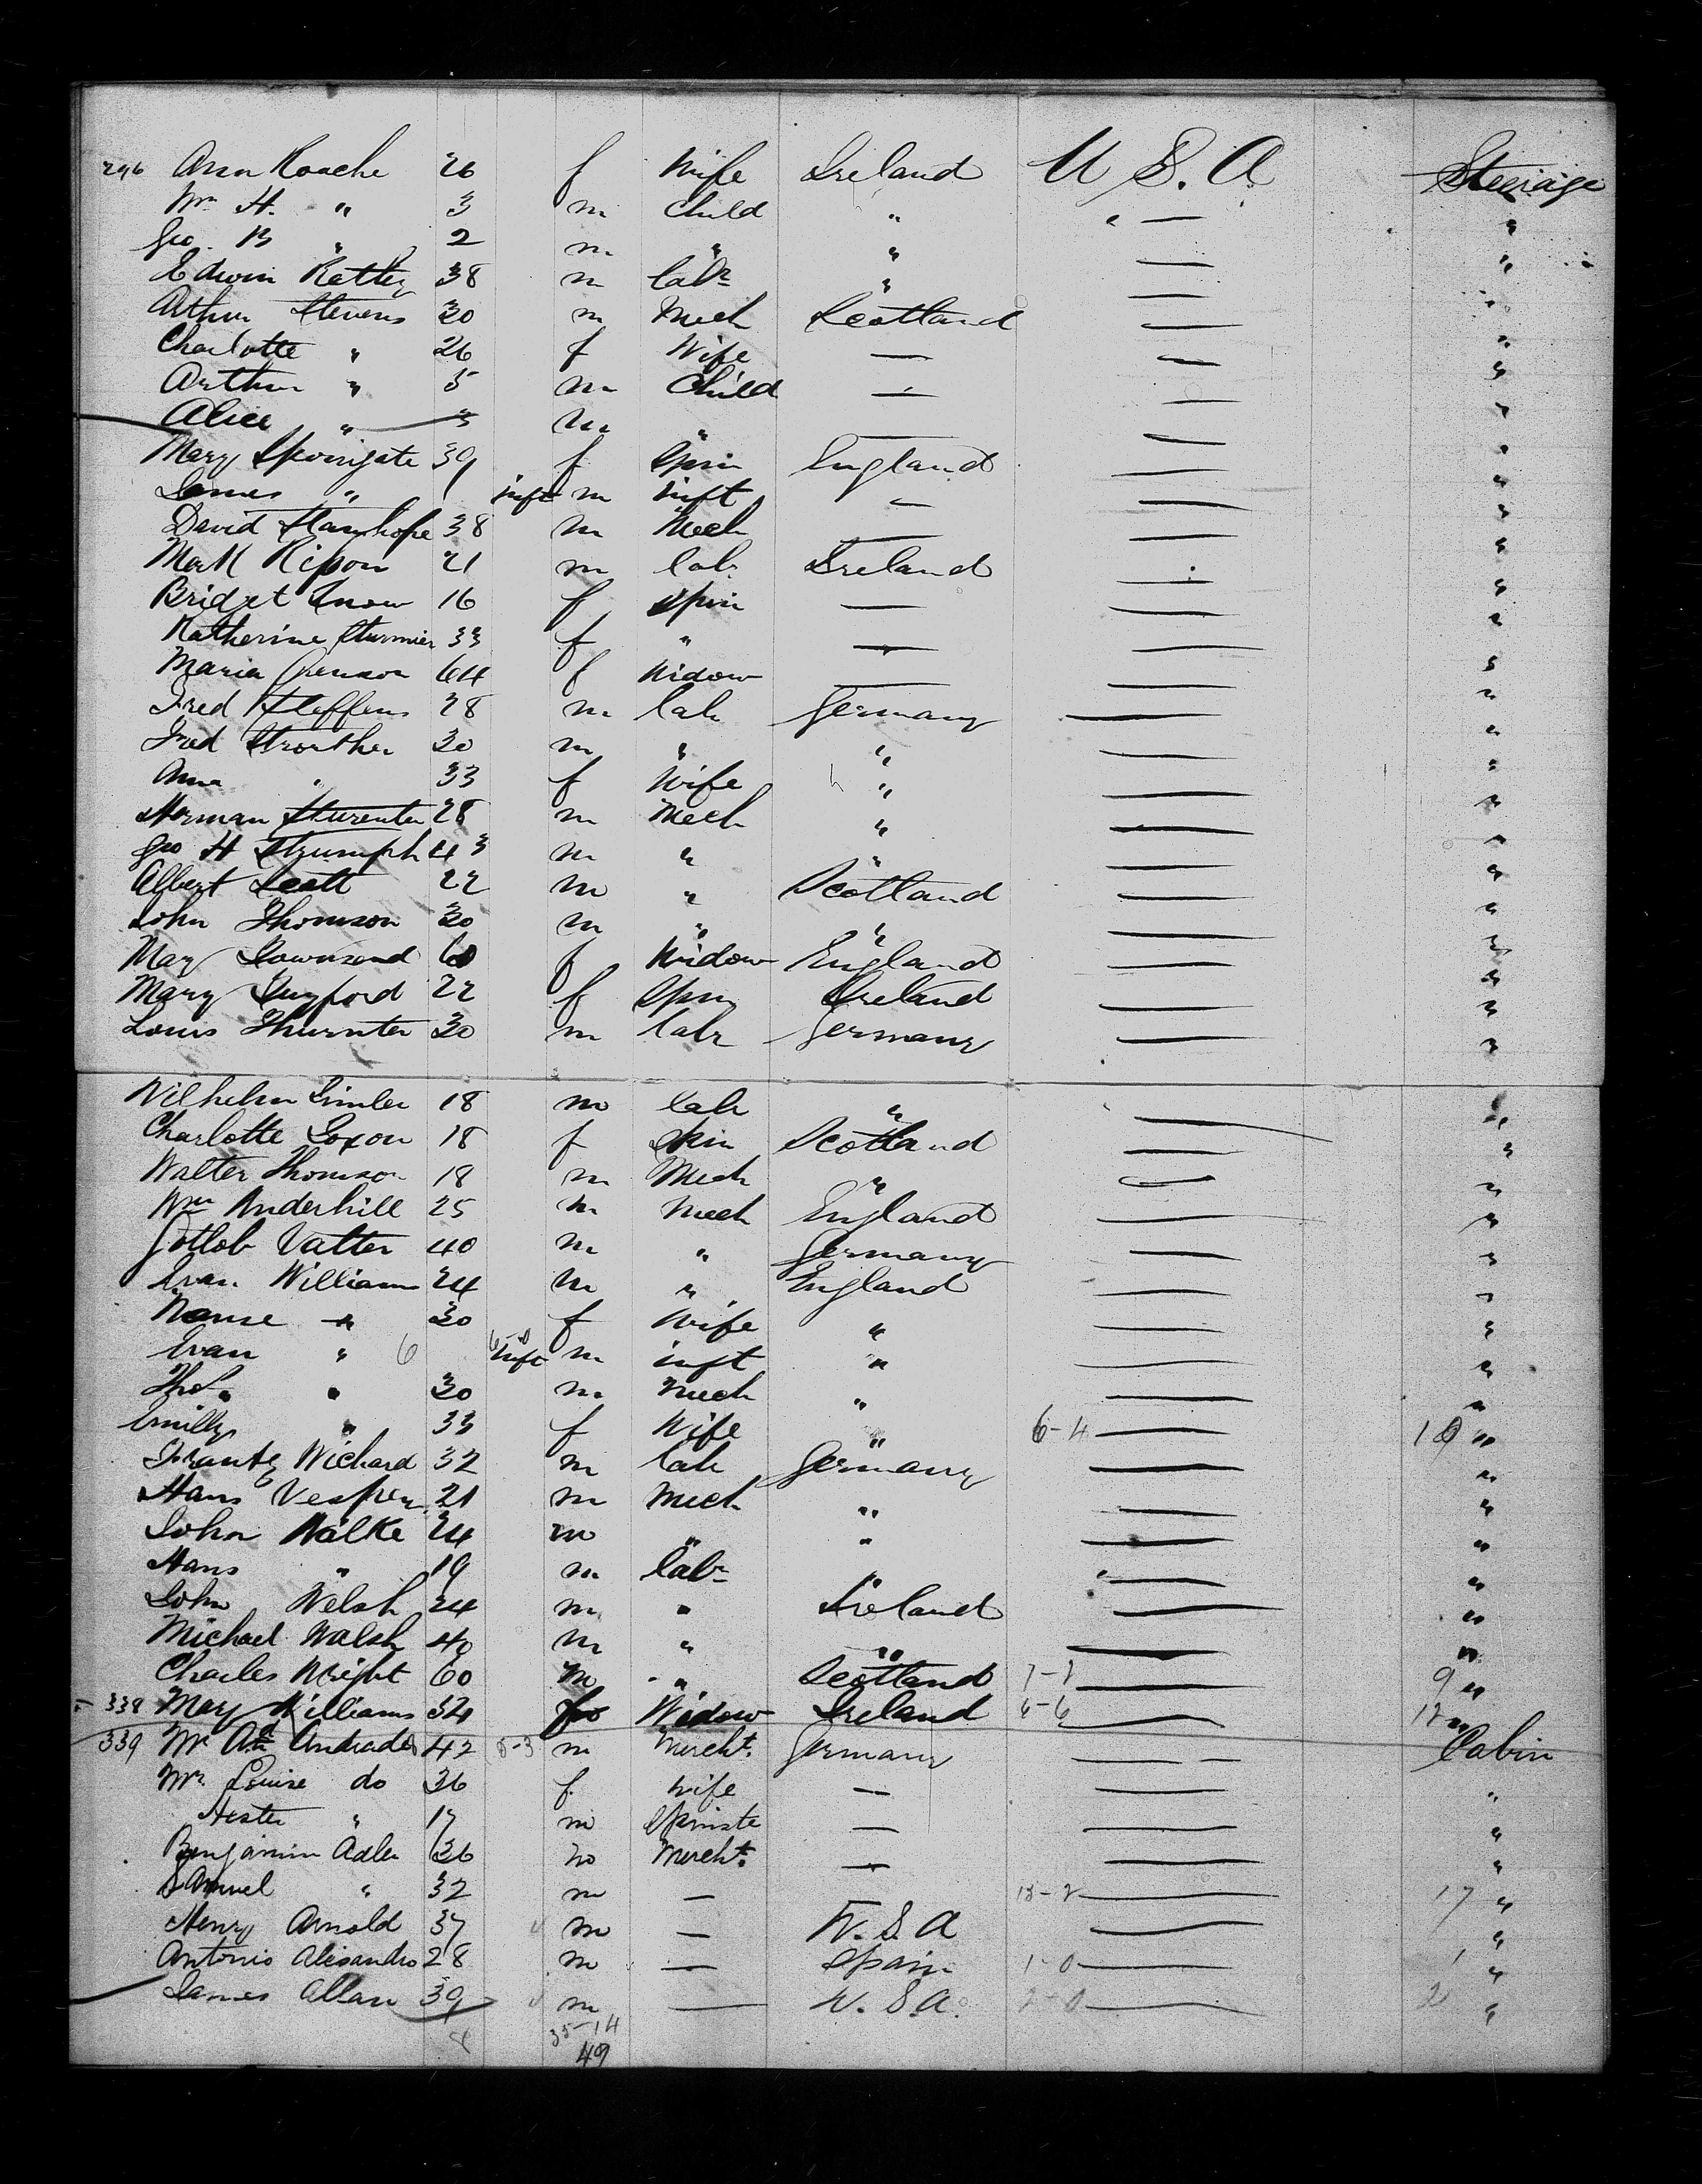 296 Ann Roache 26 f Wife Ireland U S. A Steerage
Wm H. " 3 m Child " " — "
Geo. B " 2 m " " — "
Edwin 38 m labr " — "
Arthur Stevens 30 m Mech Scotland — "
Charlotte " 26 f Wife — — "
Arthur " 5 m Child — — "
Alice " 3 m " — — "
Mary 39 f Spin England — "
James " inft m inft — — "
David Stanhope 38 m Mech — — "
Mark Ripon 21 m lab. Ireland — "
Bridget Snow 16 f Spin — — "
Katherine 33 f " — — "
Maria 64 f Widow — — "
Fred Steffens 28 m lab Germany — "
Fred Strother 30 m " " — "
Anna " 33 f Wife " — "
Herman 28 m Mech " — "
Geo H Strumph 43 m " " — "
Albert Scott 22 m " Scotland — "
John Thomson 30 m " " — "
May Townsend 60 f Widow England — "
Mary 22 f Spin Ireland — "
Louis 30 m labr Germany — "
Wilhelm 18 m lab " — "
Charlotte 18 f Spin Scotland — "
Walter Thomson 18 m Mech " — "
Wm Underhill 25 m Mech England — "
Gotlob Vatter 40 m " Germany — "
Evan Williams 24 m " England — "
30 f Wife " — "
Evan " 6 inft m inft " — "
Thos. " 30 m Mech " — "
Emilly " 33 f Wife " 6-4 — 10 "
Frantz Wichard 32 m lab Germany — "
Hans 21 m Mech " — "
John Walke 24 m " " — "
Hans " 19 m labr " " — "
John Welsh 24 m " Ireland — "
Michael Walsh 40 m " " — "
Charles Wright 60 m " Scotland — 9 "
338 May Williams 34 f Widow Ireland 6-6 — 12 "
339 Mr 42 5-3 m Mercht. Germany — Cabin
Mrs Louise do 36 f. Wife — — "
Hester " 17 m Spinste — — "
Benjamin Adler 36 m Mercht. — — "
Samuel " 32 m — — "
Henry Arnold 37 m — U. S. A — "
Antonio Alisandro 28 m — Spain 1-0 — 1 "
James Allan 39 m — U. S. A. 2-0 — 2 "
35-14
49